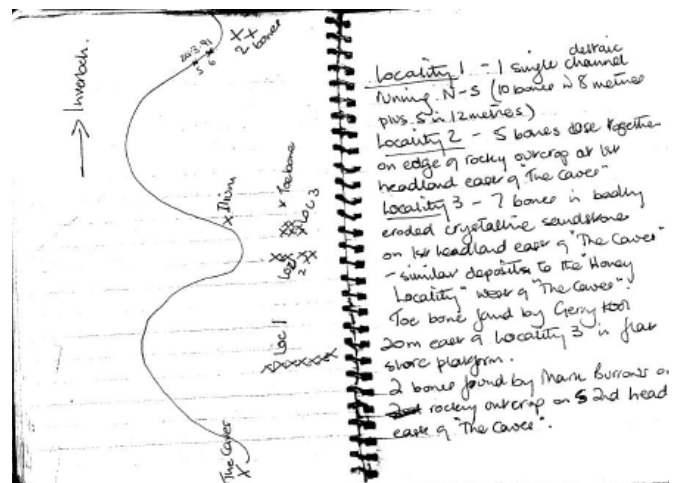 → Inverloch.
20.3.91
5 6
2 bones
x Ilium
x Toe bone
Loc 3
Loc 2
Loc 1
The Caves
x
Locality 1 - 1 single channel
running N-S (10 bones in 8 metres
plus 5 in 12 metres)
Locality 2 - 5 bones close together
on edge of rocky outcrop at 1st
headland east of "The Caves"
Locality 3 - 7 bones in badly
eroded crystalline sandstone
on 1st headland east of "The Caves"
- similar deposits to the "Honey
Locality" west of "The Caves".
Toe bone found by Gerry Kool
20m east of Locality 3 in flat
shore platform.
2 bones found by Mark Burrows on
rocky outcrop on 2nd head
east of "The Caves".